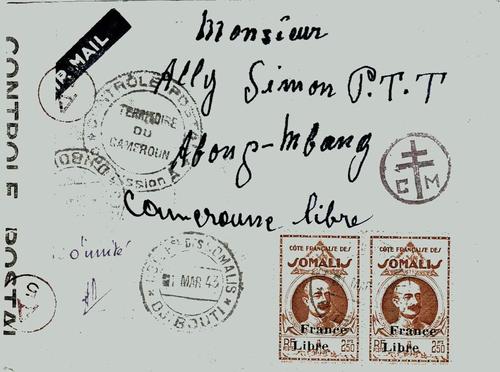 AIR MAIL
CONTROLE POSTAL
Monsieur
Ally Simon P.T.T
Abong-Mbang
Camerousse libre
CONTROLE POSTAL
TERRITOIRE
DU
CAMEROUN
Commission A
C M
DJIBOUTI
1 MAR 43
SOMALIS
DJIBOUTI
CÔTE FRANÇAISE DES
SOMALIS
France
Libre
RF
2F50
CÔTE FRANÇAISE DES
SOMALIS
France
Libre
RF
2F50